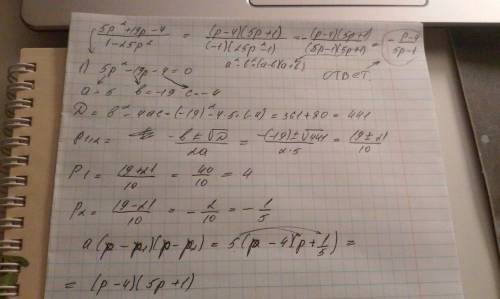 (5p² + 19p - 4)/(1 - 25p²) = (p-4)(5p+1)/((-1)(25p²-1)) = -(p-4)(5p+1)/((5p-1)(5p+1)) = -(p-4)/(5p-1)
a² - b² = (a-b)(a+b)
ответ.
1) 5p² - 19p - 4 = 0
a = 5 b = -19 c = -4
D = b² - 4ac = (-19)² - 4·5·(-4) = 361 + 80 = 441
P1,2 = (-b ± √D)/2a = (-(-19) ± √441)/(2·5) = (19 ± 21)/10
P1 = (19+21)/10 = 40/10 = 4
P2 = (19-21)/10 = -2/10 = -1/5
a(p - p1)(p - p2) = 5(p - 4)(p + 1/5) =
= (p-4)(5p+1)